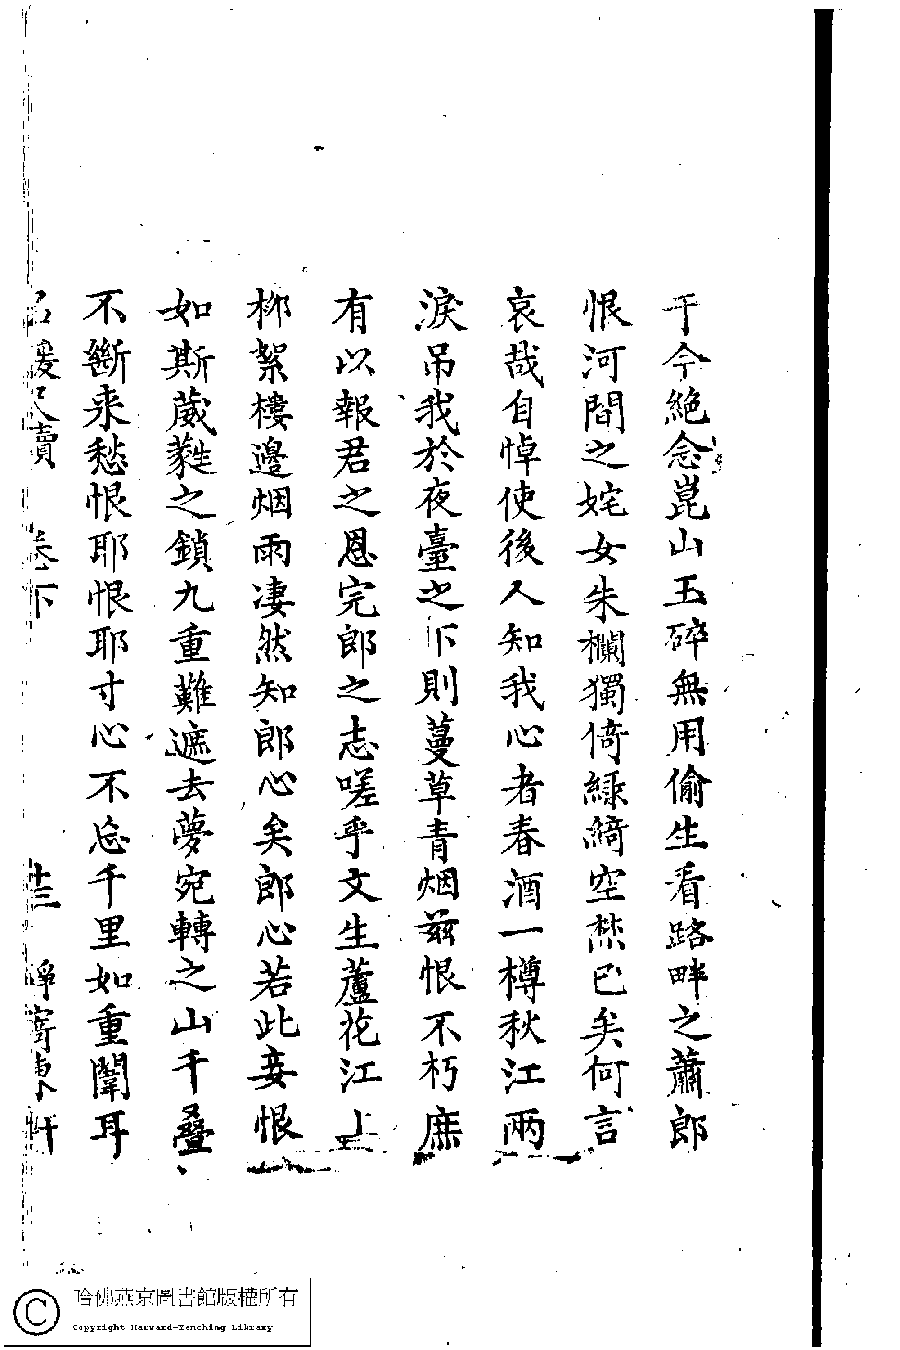 于今絶念崑山玉碎無用偷生看路畔之蕭郎
恨河間之姹女朱欄獨倚緑綺空焚已矣何言
哀哉自悼使後人知我心者春酒一樽秋江兩
淚吊我於夜臺之下則蔓草青烟兹恨不朽庶
有以報君之恩完郎之志嗟乎文生蘆花江上
柳絮樓邊烟雨凄然知郎心矣郎心若此妾恨
如斯葳蕤之鎖九重難遮去夢宛轉之山千叠
不斷來愁恨耶恨耶寸心不忘千里如重闈耳
名媛尺牘 卷下 十三 靜寄東軒
哈佛燕京圖書館版權所有
Copyright Harvard-Yenching Library